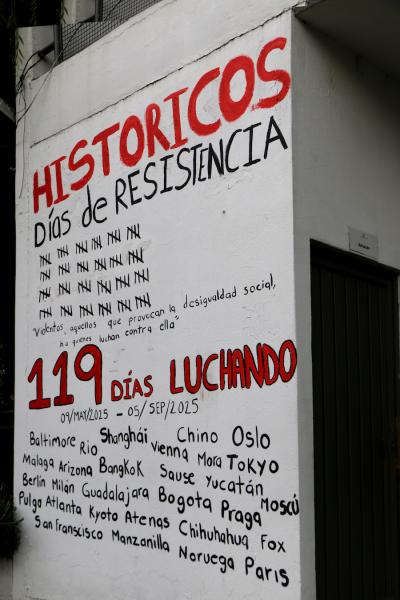 HISTORICOS
Días de RESISTENCIA
"Violentos, aquellos que provocan la desigualdad social,
no quienes luchan contra ella"
119 DÍAS LUCHANDO
09/MAY/2025 - 05/SEP/2025
Baltimore Rio Shanghái Vienna Chino Oslo
Malaga Arizona Bangkok Mora Tokyo
Berlín Milán Guadalajara Sause Yucatán Moscú
Pulga Atlanta Kyoto Bogota Praga
San Francisco Atenas Chihuhahua Fox
Manzanilla Noruega Paris